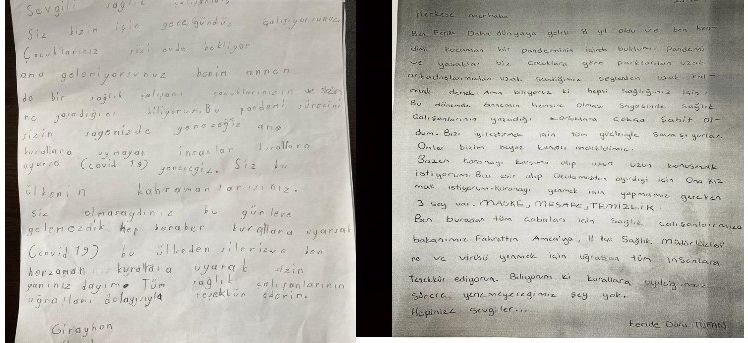 Sevgili sağlık çalışanları
Siz bizim için gece gündüz çalışıyorsunuz
Çocuklarınız sizi evde bekliyor
ama gelemiyorsunuz benim annem
de bir sağlık çalışanı çocuklarınızın ve sizin
ne yaşadığını biliyorum. Bu pandemi sürecini
sizin sayenizde yeneceğiz ama
kurallara uymayan insanlar kurallara
uyarsa (covid 19) yeneceğiz. Siz bu
ülkenin kahramanlarısınız.
Siz olmasaydınız bu günlere
gelemezdik hep beraber kurallara uyarsak
(covid 19) bu ülkeden silerizve ben
herzaman kurallara uyarak sizin
yanınız dayım. Tüm sağlık çalışanlarının
uğraşları dolayısıyla teşekkür ederim.
Girayhan
Herkese merhaba
Ben Feride Duru dünyaya geleli 8 yıl oldu ve ben ken-
dimi kocaman bir pandeminin içinde buldum. Pandemi
ve yasaklar biz çocuklara göre parklardan uzak
arkadaşlarımdan uzak sevdiğimiz şeylerden uzak kal-
mak demek. Ama biliyoruz ki hepsi sağlığımız için.
Bu dönemde annemin hemşire olması sayesinde sağlık
çalışanlarının yaşadığı zorluklara çokça şahit ol-
dum. Bizi iyileştirmek için tüm güçleriyle savaşıyorlar.
Onlar bizim beyaz kanatlı meleklerimiz.
Bazen koronayı karşıma alıp uzun uzun konuşmak
istiyorum. Bizi esir alıp okulumuzdan ayırdığı için ona kız
mak istiyorum. Koronayı yenmek için yapmamız gereken
3 şey var. MASKE, MESAFE, TEMİZLİK
Ben buradan tüm çabaları için sağlık çalışanlarımıza
bakanımız Fahrettin Amca'ya, il ilçe Sağlık Müdürlükleri
ne ve virüsü yenmek için uğraşan tüm insanlara
teşekkür ediyorum. Biliyorum ki kurallara uyduğumuz
sürece yenemeyeceğimiz şey yok.
Hepinize sevgiler...
Feride Duru